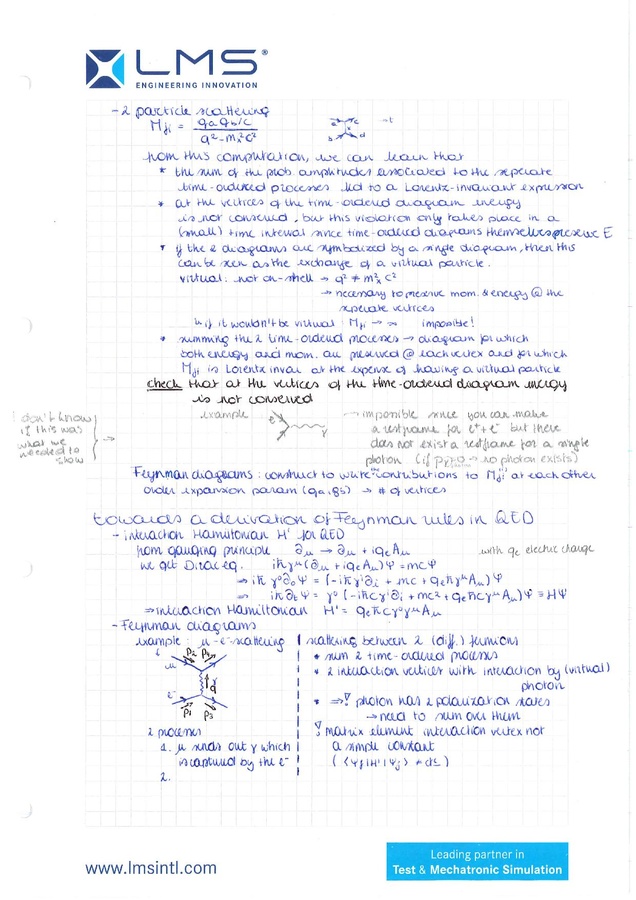 LMS®
ENGINEERING INNOVATION
- 2 particle scattering
M_fi = g_a g_b/c / q² - m_x²c²
a c → t
b d
from this computation, we can learn that
* the sum of the prob. amplitudes associated to the seperate
time-ordered processes led to a Lorentz-invariant expression
* at the vertices of the time-ordered diagram energy
is not conserved, but this violation only takes place in a
(small) time interval since time-ordered diagrams themselves preserve E
* if the 2 diagrams are symbolized by a single diagram, then this
can be seen as the exchange of a virtual particle.
virtual: not on-shell → q² ≠ m_x² c²
→ necessary to preserve mom. & energy @ the
seperate vertices
↳ if it wouldn't be virtual: M_fi → ∞ impossible!
* summing the 2 time-ordered processes → diagram for which
both energy and mom. are preserved @ each vertex and for which
M_fi is Lorentz invar at the expense of having a virtual particle
check that at the vertices of the time-ordered diagram energy
is not conserved
I don't know
if this was
what we
needed to
show
→
example
e⁻
e⁺
γ
→ impossible since you can make
a restframe for e⁺+e⁻ but there
does not exist a restframe for a single
photon (if p=0 → no photon exists)
Feynman diagrams: construct to write the contributions to M_fi at each other
order expansion param (g_a, g_b) → # of vertices
towards a derivation of Feynman rules in QED
- interaction Hamiltonian H' for QED
from gauging principle ∂_μ → ∂_μ + iq_e A_μ with q_e electric charge
we get Dirac eq. iħγ^μ(∂_μ + iq_e A_μ)Ψ = mcΨ
⇒ iħ γ⁰∂₀Ψ = (-iħγ^i∂_i + mc + q_e ħγ^μ A_μ)Ψ
⇒ iħ ∂_t Ψ = γ⁰(-iħcγ^i∂_i + mc² + q_e ħcγ^μ A_μ)Ψ ≡ HΨ
⇒ interaction Hamiltonian H' = q_e ħcγ⁰γ^μ A_μ
- Feynman diagrams
example: μ-e⁻ scattering
μ⁻ p₂ p₄
q
e⁻ p₁ p₃
2 processes
1. μ sends out γ which
is captured by the e⁻
2.
scattering between 2 (diff.) fermions
* sum 2 time-ordered processes
* 2 interaction vertices with interaction by (virtual)
photon
* ⇒! photon has 2 polarization states
→ need to sum over them
! matrix element interaction vertex not
a simple constant
(⟨Ψ_f|H'|Ψ_i⟩ ≠ cte)
www.lmsintl.com
Leading partner in
Test & Mechatronic Simulation